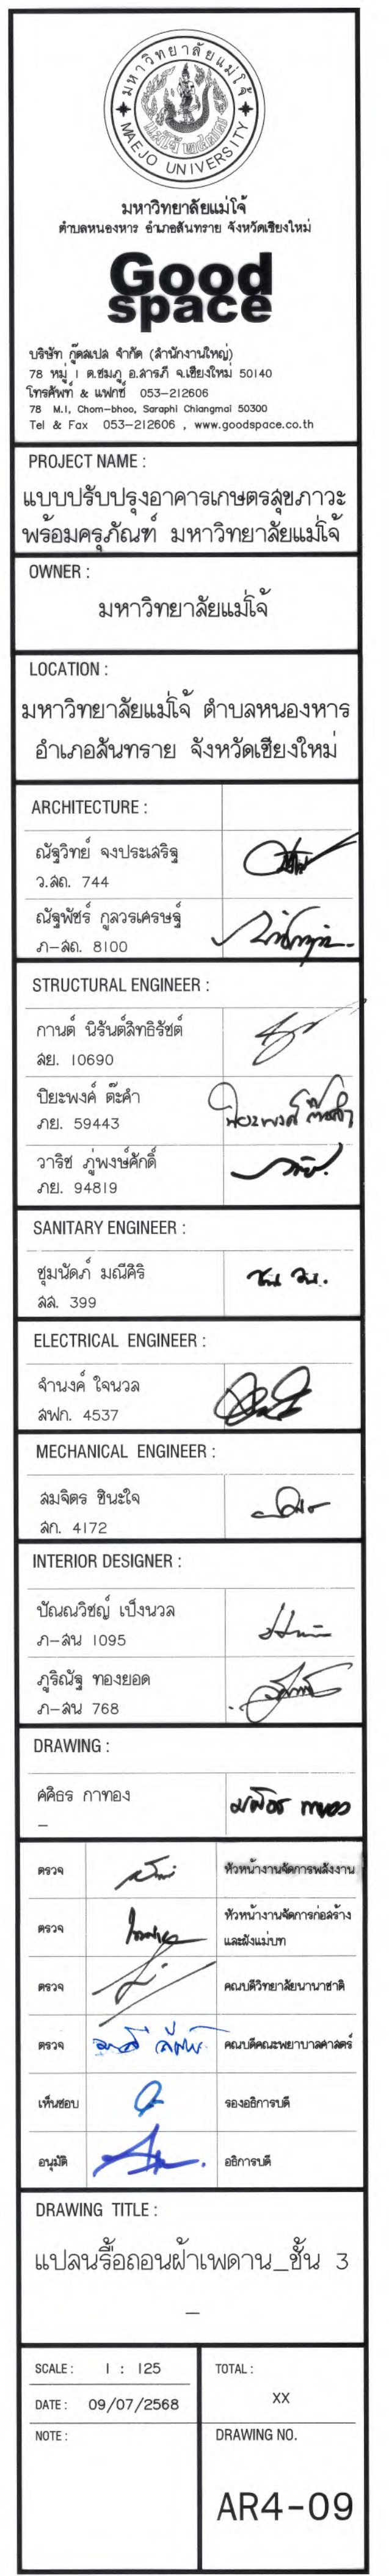 มหาวิทยาลัยแม่โจ้
MAEJO UNIVERSITY
มหาวิทยาลัยแม่โจ้
ตำบลหนองหาร อำเภอสันทราย จังหวัดเชียงใหม่
Good
space
บริษัท กู๊ดสเปส จำกัด (สำนักงานใหญ่)
78 หมู่ 1 ต.ชมภู อ.สารภี จ.เชียงใหม่ 50140
โทรศัพท์ & แฟกซ์ 053-212606
78 M.1, Chom-bhoo, Saraphi Chiangmai 50300
Tel & Fax 053-212606 , www.goodspace.co.th
PROJECT NAME :
แบบปรับปรุงอาคารเกษตรสุขภาวะ
พร้อมครุภัณฑ์ มหาวิทยาลัยแม่โจ้
OWNER :
มหาวิทยาลัยแม่โจ้
LOCATION :
มหาวิทยาลัยแม่โจ้ ตำบลหนองหาร
อำเภอสันทราย จังหวัดเชียงใหม่
ARCHITECTURE :
ณัฐวิทย์ จงประเสริฐ
ว.สถ. 744
ณัฐพัชร์ กูลวรเศรษฐ์
ภ-สถ. 8100
STRUCTURAL ENGINEER :
กานต์ นิรันต์สิทธิรัชต์
สย. 10690
ปิยะพงค์ ต๊ะคำ
ภย. 59443
วาริช ภู่พงษ์ศักดิ์
ภย. 94819
SANITARY ENGINEER :
ชุมนัดภ์ มณีศิริ
สส. 399
ELECTRICAL ENGINEER :
จำนงค์ ใจนวล
สฟก. 4537
MECHANICAL ENGINEER :
สมจิตร ชินะใจ
สก. 4172
INTERIOR DESIGNER :
ปัณณวิชญ์ เป็งนวล
ภ-สน 1095
ภูริณัฐ ทองยอด
ภ-สน 768
DRAWING :
ศศิธร กาทอง
–
ตรวจ หัวหน้างานจัดการพลังงาน
ตรวจ หัวหน้างานจัดการก่อสร้าง
และผังแม่บท
ตรวจ คณบดีวิทยาลัยนานาชาติ
ตรวจ คณบดีคณะพยาบาลศาสตร์
เห็นชอบ รองอธิการบดี
อนุมัติ อธิการบดี
DRAWING TITLE :
แปลนรื้อถอนฝ้าเพดาน_ชั้น 3
–
SCALE : 1 : 125
TOTAL :
XX
DATE : 09/07/2568
NOTE :
DRAWING NO.
AR4-09